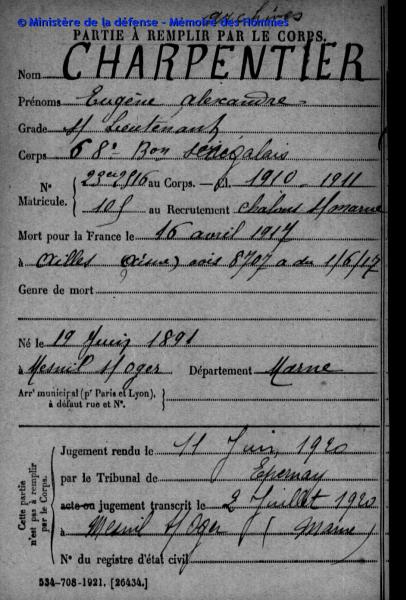 © Ministère de la défense - Mémoire des Hommes
archives
PARTIE À REMPLIR PAR LE CORPS.
Nom CHARPENTIER
Prénoms Eugène Alexandre
Grade S/ Lieutenant
Corps 68e Bon Sénégalais
N° Matricule. au Corps. — Cl. 1910 - 1911
105 au Recrutement Chalons s/ marne
Mort pour la France le 16 avril 1917
à Ailles (Aisne) avis 8707 a du 1/6/17
Genre de mort
Né le 19 Juin 1891
à Mesnil s/ Oger Département Marne
Arrt municipal (pr Paris et Lyon), à défaut rue et N°.
Cette partie n'est pas à remplir par le Corps.
Jugement rendu le 11 Juin 1920
par le Tribunal de Epernay
acte ou jugement transcrit le 2 Juillet 1920
à Mesnil s/ Oger (Marne)
N° du registre d'état civil
534-708-1921. [26434.]